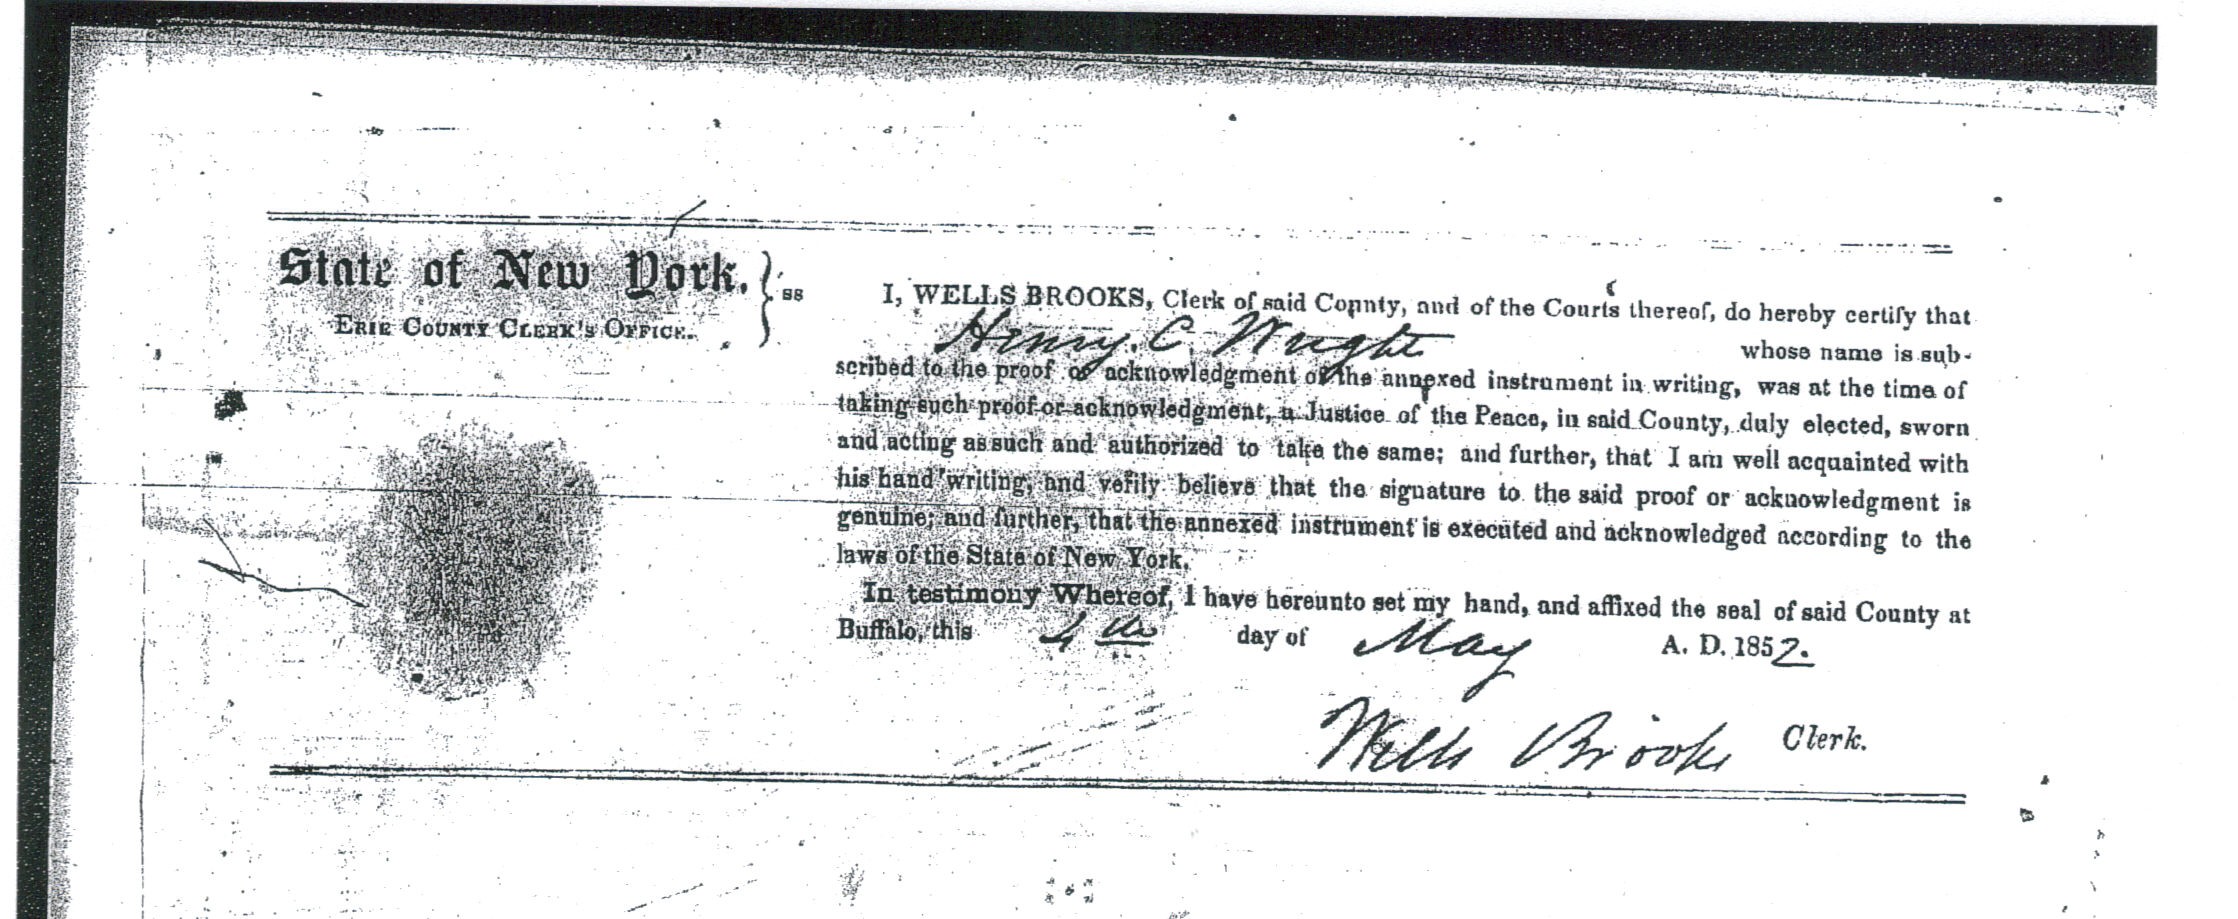 State of New York. } ss
ERIE COUNTY CLERK'S OFFICE.
I, WELLS BROOKS, Clerk of said County, and of the Courts thereof, do hereby certify that
Henry C. Wright whose name is sub-
scribed to the proof or acknowledgment of the annexed instrument in writing, was at the time of
taking such proof or acknowledgment, a Justice of the Peace, in said County, duly elected, sworn
and acting as such and authorized to take the same; and further, that I am well acquainted with
his hand writing, and verily believe that the signature to the said proof or acknowledgment is
genuine; and further, that the annexed instrument is executed and acknowledged according to the
laws of the State of New York.
In testimony Whereof, I have hereunto set my hand, and affixed the seal of said County at
Buffalo, this 4th day of May A. D. 1852.
Wells Brooks Clerk.